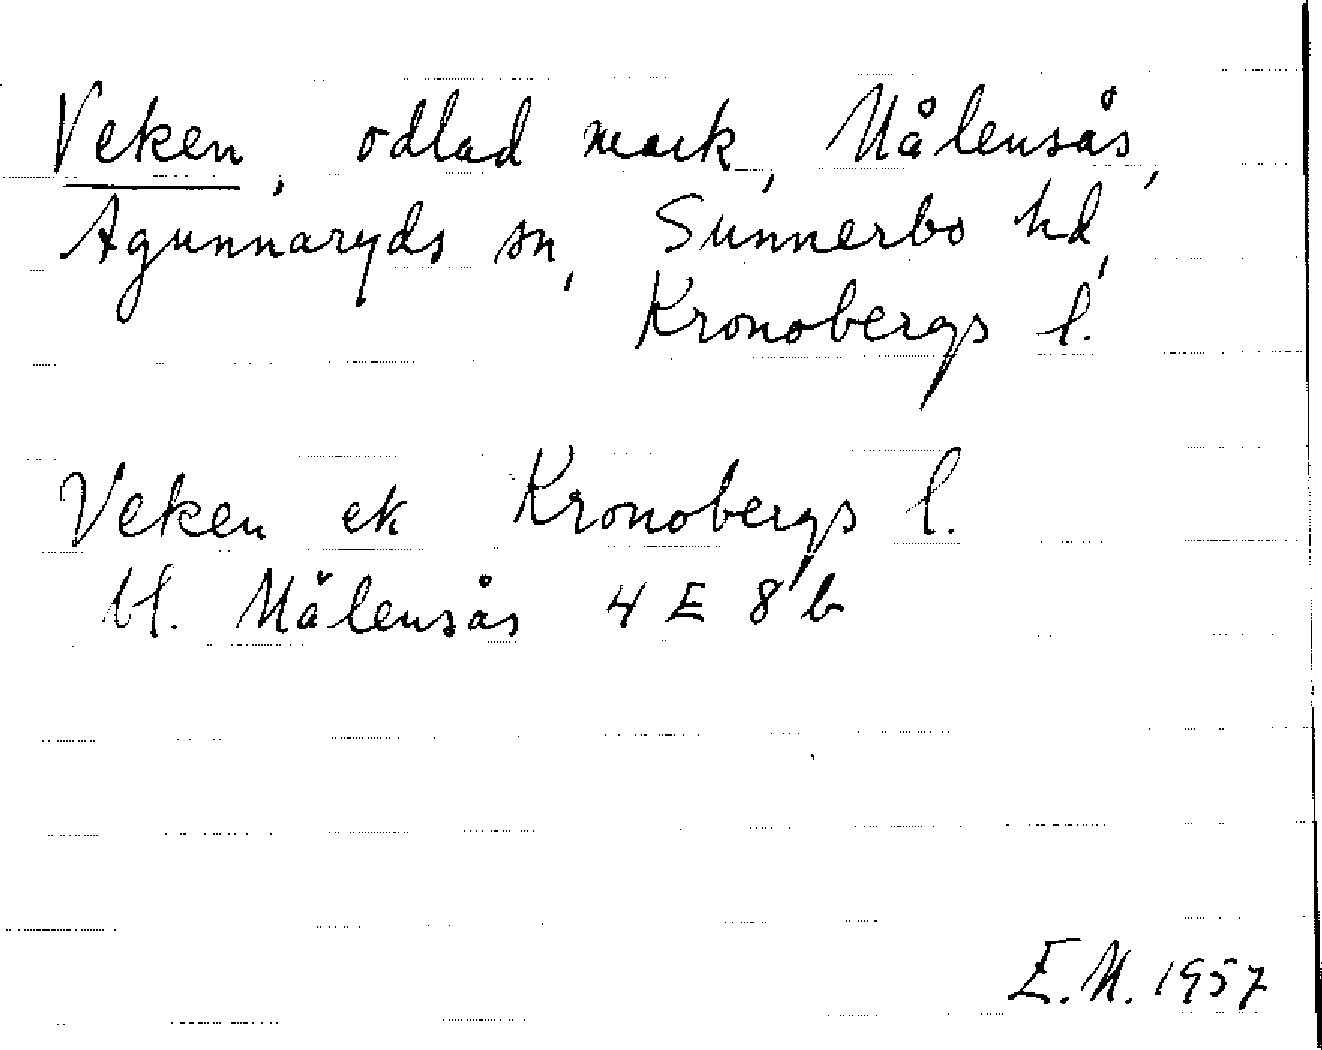 Veken, odlad mark, Målensås,
Agunnaryds sn, Sunnerbo hd,
Kronobergs l.
Veken ek Kronobergs l.
bl. Målensås 4 E 8 b
E.M. 1957